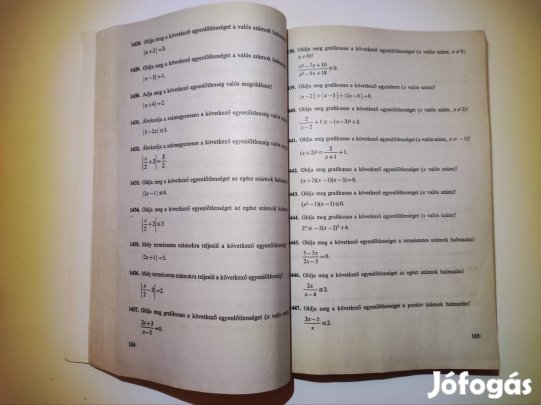 1428. Oldja meg a következő egyenlőtlenséget a valós számok
|x+2|<3.
1429. Oldja meg a következő egyenlőtlenséget a valós számok
|x−3|>1.
1430. Adja meg a következő egyenlőtlenség valós megoldásait!
|x+4|<2.
1431. Ábrázolja a számegyenesen a következő egyenlőtlenség
|1−2x|≤3.
1432. Ábrázolja a számegyenesen a következő egyenlőtlenség
|x/2+2|>3/2
1433. Oldja meg a következő egyenlőtlenséget az egész számok
|2x−1|≤4.
1434. Oldja meg a következő egyenlőtlenséget az egész számok
|x/2+2|≤3.
1435. Mely természetes számokra teljesül a következő egyenlőtlenség?
|2x+1|<5.
1436. Mely természetes számokra teljesül a következő egyenlőtlenség?
1437. Oldja meg grafikusan a következő egyenlőtlenséget (x valós
(2x+3)/(x−5)
164
438. Oldja meg grafikusan a következő egyenlőtlenséget (x valós szám, x≠3;
x≠6)!
(x²−7x+10)/(x²−9x+18)
439. Oldja meg grafikusan a következő egyenletet (x valós szám)!
|x−2|+|x−3|+|2x−8|=9.
440. Oldja meg grafikusan a következő egyenlőtlenséget (x valós szám, x≠2)!
2/(x−2)+1≤−(x−3)²+3.
1441. Oldja meg grafikusan a következő egyenlőtlenséget (x valós szám, x≠−1)!
442. Oldja meg grafikusan a következő egyenlőtlenséget (x valós szám)!
(x+2)(x−1)(x−3)>0.
443. Oldja meg grafikusan a következő egyenlőtlenséget (x valós szám)!
(x²−1)(x−1)≤0.
444. Oldja meg grafikusan a következő egyenlőtlenséget (x valós szám)!
445. Oldja meg a következő egyenlőtlenséget a természetes számok halmazán!
(5−3x)/(2x−3)
446. Oldja meg a következő egyenlőtlenséget az egész számok halmazán!
2x/(x−4)≤2.
447. Oldja meg a következő egyenlőtlenséget a pozitív számok halmazán!
(3x−5)/x≤2.
165
Jófogás